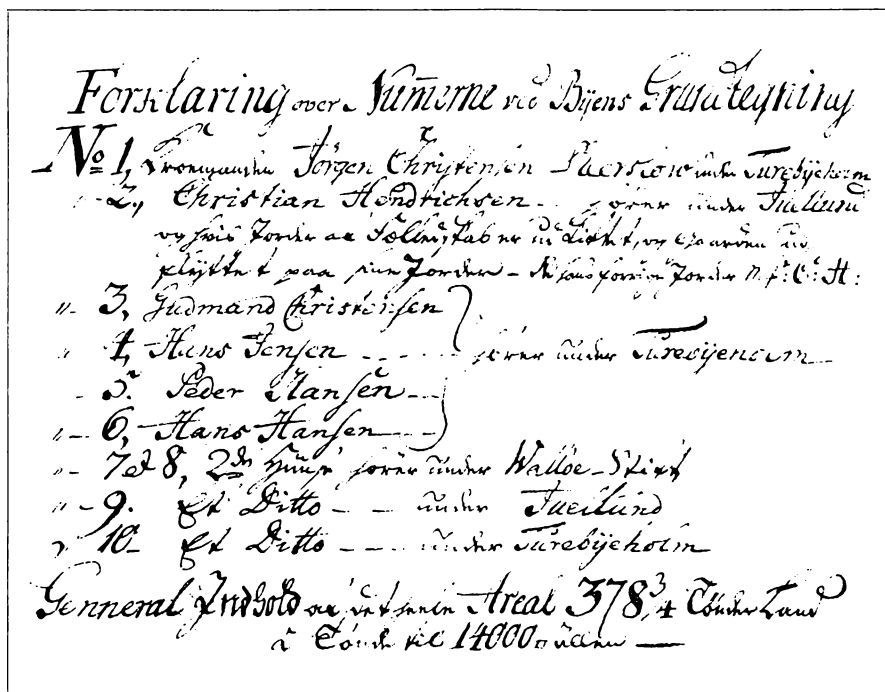 Forklaring over Numerne ved Byens Grundtegning
No 1, Jörgen Christensen under Turebyeholm
" 2, Christian Hendrichsen - hører under Juellund
og hvis Jorder af Fælledskab er udskiftet, og Gaarden ud
flyttet paa sine Jorder - Jorder N: C: H:
" 3, Gudmand Christensen
" 4, Hans Jensen - - - - hører under Turebyeholm
- 5. Peder Hansen - -
" - 6, Hans Hansen - - -
" - 7 & 8, 2de Huuse hører under Walløe-Stift
" - 9. Et Ditto - - under Juellund
" 10 - Et Ditto - - - under Turebyeholm
Genneral Indhold af det heele Areal 378 3/4 Tønder Land
à Tønde til 14000 □ allen —